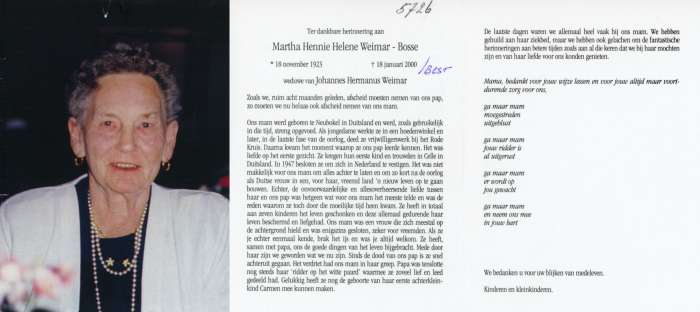 5726
Ter dankbare herinnering aan
Martha Hennie Helene Weimar - Bosse
* 18 november 1923 † 18 januari 2000
/BEST
weduwe van Johannes Hermanus Weimar
Zoals we, ruim acht maanden geleden, afscheid moesten nemen van ons pap,
zo moeten we nu helaas ook afscheid nemen van ons mam.
Ons mam werd geboren te Neubokel in Duitsland en werd, zoals gebruikelijk
in die tijd, streng opgevoed. Als jongedame werkte ze in een hoedenwinkel en
later, in de laatste fase van de oorlog, deed ze vrijwilligerwerk bij het Rode
Kruis. Daarna kwam het moment waarop ze ons pap leerde kennen. Het was
liefde op het eerste gezicht. Ze kregen hun eerste kind en trouwden in Celle in
Duitsland. In 1947 besloten ze om zich in Nederland te vestigen. Het was niet
makkelijk voor ons mam om alles achter te laten en om zo kort na de oorlog
als Duitse vrouw in een, voor haar, vreemd land 'n nieuw leven op te gaan
bouwen. Echter, de onvoorwaardelijke en allesoverheersende liefde tussen
haar en ons pap was hetgeen wat voor ons mam het meeste telde en was de
reden waarom ze toch door die moeilijke tijd heen kwam. Ze heeft in totaal
aan zeven kinderen het leven geschonken en deze allemaal gedurende haar
leven beschermd en liefgehad. Ons mam was een vrouw die zich meestal op
de achtergrond hield en was enigszins gesloten, zeker voor vreemden. Als ze
je echter eenmaal kende, brak het ijs en was je altijd welkom. Ze heeft,
samen met papa, ons de goede dingen van het leven bijgebracht. Mede door
haar zijn we geworden wat we nu zijn. Sinds de dood van ons pap is ze snel
achteruit gegaan. Het verdriet had ons mam in haar greep. Papa was tenslotte
nog steeds haar 'ridder op het witte paard' waarmee ze zoveel lief en leed
gedeeld had. Gelukkig heeft ze nog de geboorte van haar eerste achterklein-
kind Carmen mee kunnen maken.
De laatste dagen waren we allemaal heel vaak bij ons mam. We hebben
gehuild aan haar ziekbed, maar we hebben ook gelachen om de fantastische
herinneringen aan betere tijden zoals aan al die keren dat we bij haar mochten
zijn en van haar liefde voor ons konden genieten.
Mama, bedankt voor jouw wijze lessen en voor jouw altijd maar voort-
durende zorg voor ons,
ga maar mam
moegestreden
uitgeblust
ga maar mam
jouw ridder is
al uitgerust
ga maar mam
er wordt op
jou gewacht
ga maar mam
en neem ons mee
in jouw hart
We bedanken u voor uw blijken van medeleven.
Kinderen en kleinkinderen.